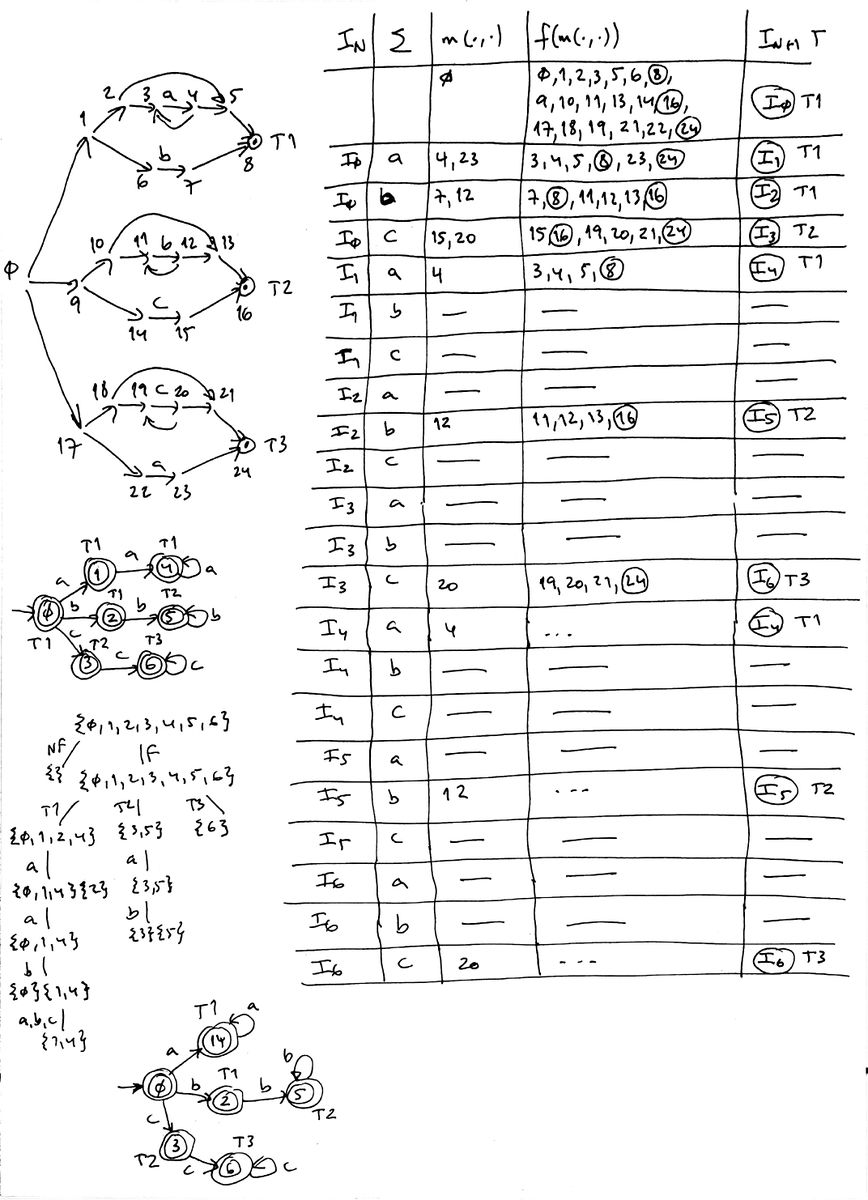 I_N Σ m(·,·) f(m(·,·)) I_N+1 T
φ φ,1,2,3,5,6,8,
9,10,11,13,14,16, I_φ T1
17,18,19,21,22,24
I_φ a 4,23 3,4,5,8,23,24 I_1 T1
I_φ b 7,12 7,8,11,12,13,16 I_2 T1
I_φ c 15,20 15,16,19,20,21,24 I_3 T2
I_1 a 4 3,4,5,8 I_4 T1
I_1 b — — —
I_1 c — — —
I_2 a — — —
I_2 b 12 11,12,13,16 I_5 T2
I_2 c — — —
I_3 a — — —
I_3 b — — —
I_3 c 20 19,20,21,24 I_6 T3
I_4 a 4 ... I_4 T1
I_4 b — — —
I_4 c — — —
I_5 a — — —
I_5 b 12 ... I_5 T2
I_5 c — — —
I_6 a — — —
I_6 b — — —
I_6 c 20 ... I_6 T3
2 3 a 4 5
1
8 T1
b
6 7
10 11 b 12 13
φ
9
16 T2
c
14 15
18 19 c 20 21
17
24 T3
a
22 23
T1 T1
a 1 a 4 a
T1 T2
φ b 2 b 5 b
T1 c T2 T3
3 c 6 c
{φ,1,2,3,4,5,6}
NF F
{} {φ,1,2,3,4,5,6}
T1 T2 T3
{φ,1,2,4} {3,5} {6}
a a
{φ,1,4}{2} {3,5}
a b
{φ,1,4} {3}{5}
b
{φ}{1,4}
a,b,c
{1,4}
T1 a
a 14
T1 b
φ b 2 b 5
c T2
T2 3 T3
c 6 c